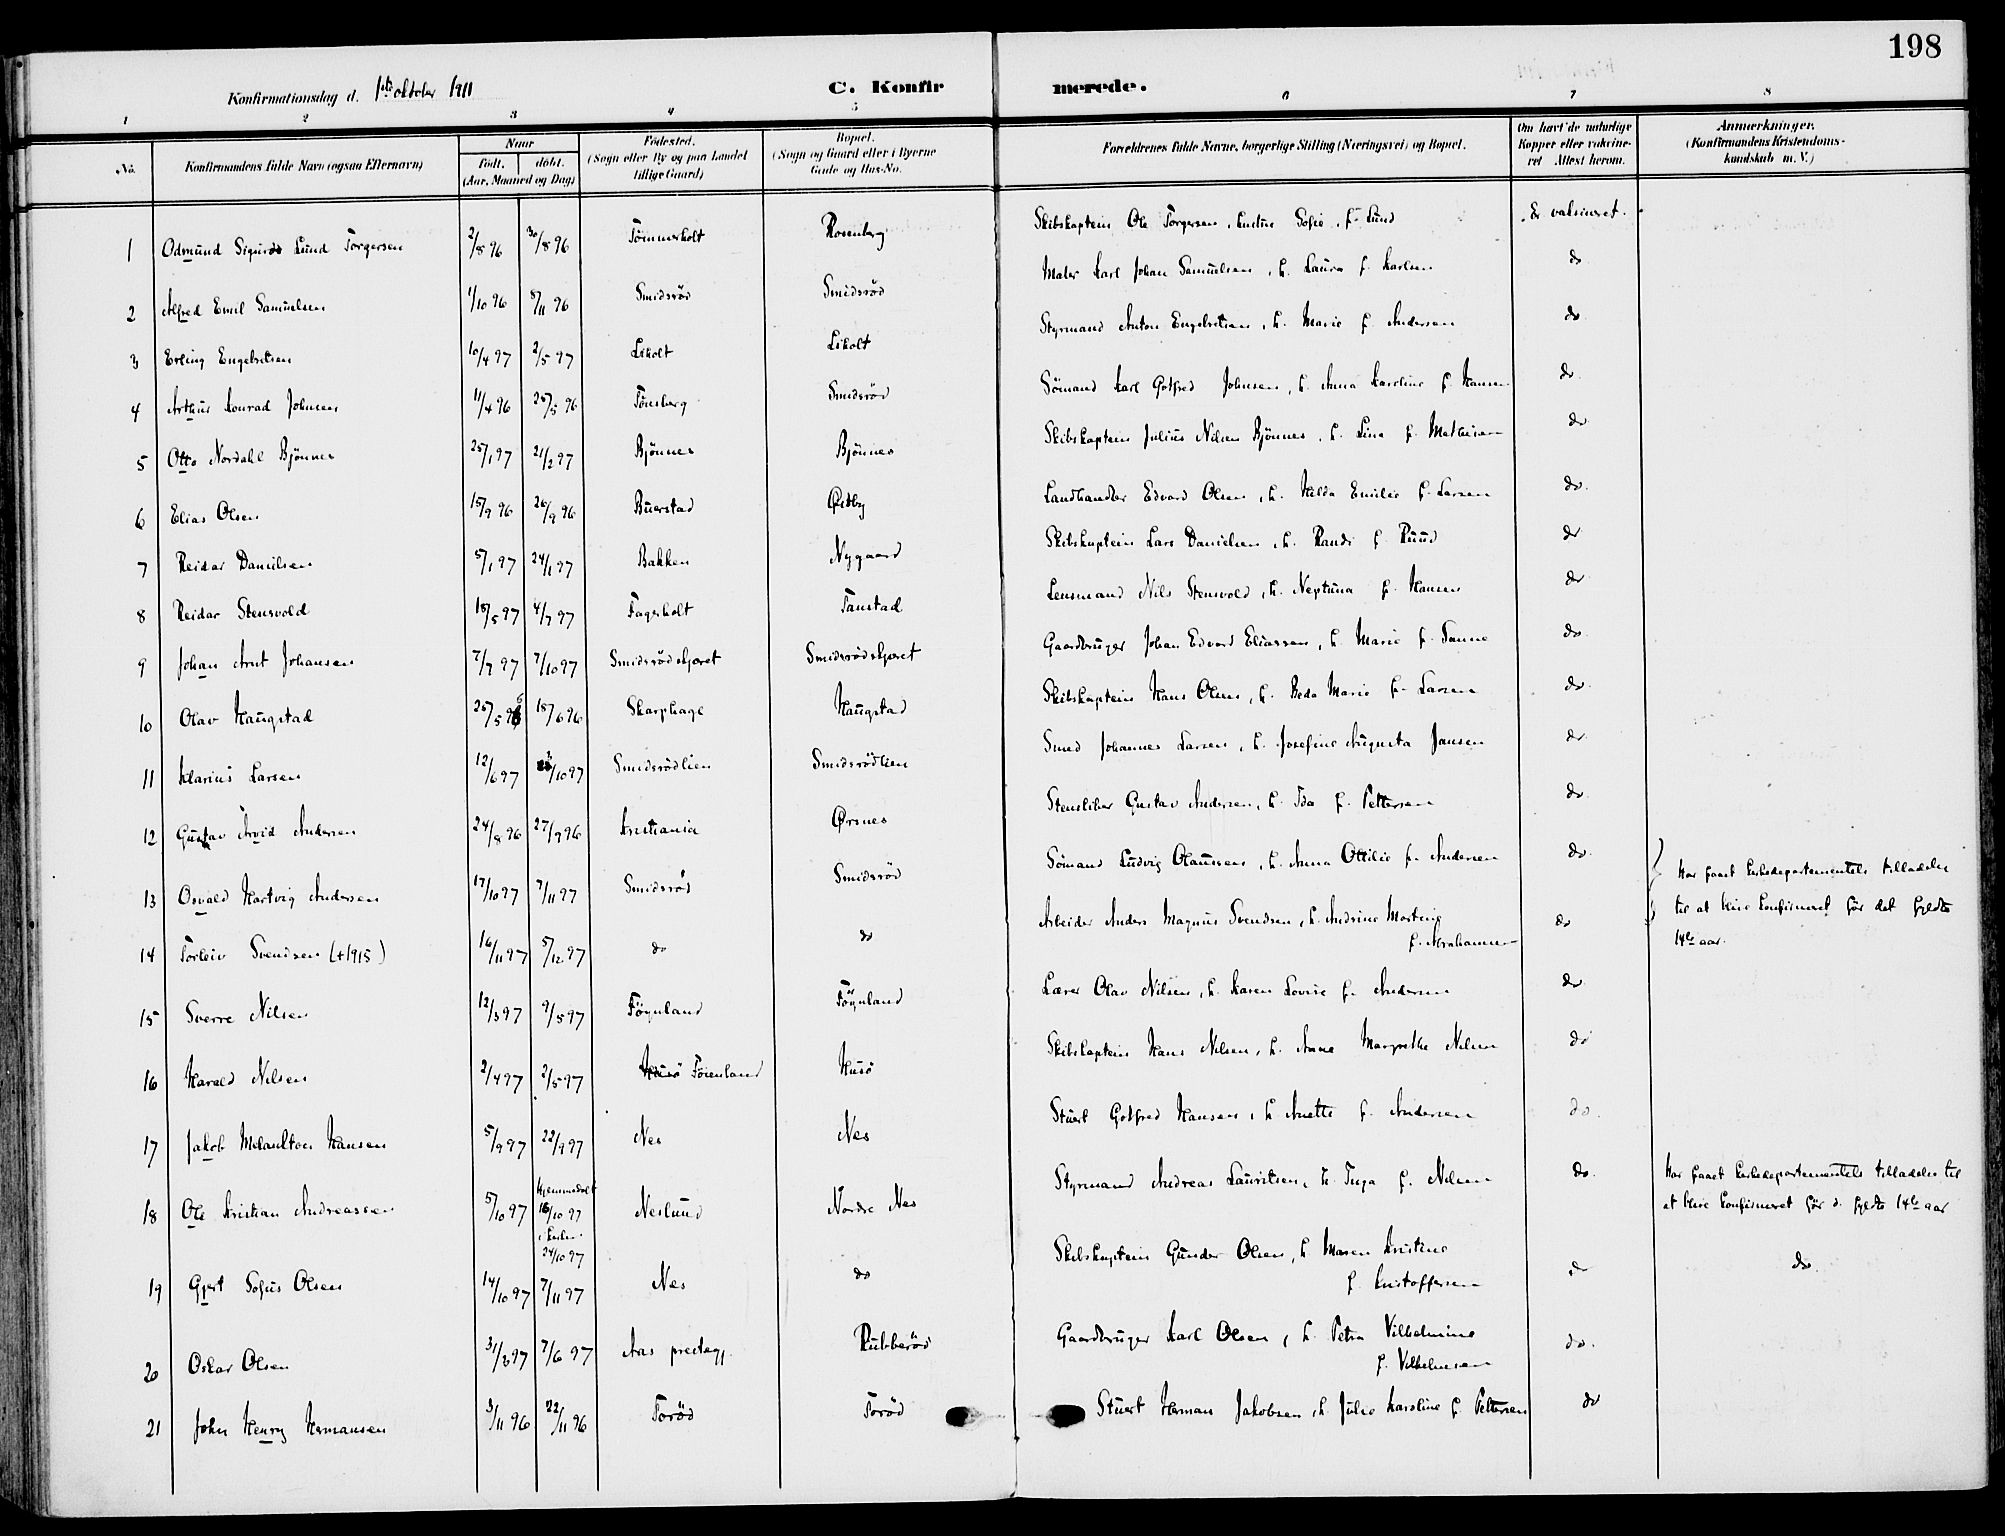 198
Konfirmationsdag d. 1ste oktober 1911
C. Konfirmerede.
1 2 3 4 5 6 7 8
No.
Konfirmandens fulde Navn (ogsaa Efternavn)
Naar
født. døbt.
(Aar, Maaned og Dag)
Fødested.
(Sogn eller By og paa Landet
tillige Gaard)
Bopæl.
(Sogn og Gaard eller i Byerne
Gade og Hus-No.
Forældrenes fulde Navne, borgerlige Stilling (Næringsvei) og Bopæl.
Om havt de naturlige
Kopper eller vakcine-
ret Attest herom.
Anmærkninger.
(Konfirmandens Kristendoms-
kundskab m. V.)
1 Odmund Sigurds Lund Torgersen 2/8 96 30/8 96 Tømmerholt Rosenberg Skibskaptein Ole Torgersen, hustru Sofie, f. Lund Er vaksineret.
2 Alfred Emil Samuelsen 1/10 96 8/11 96 Smidsrød Smidsrød Maler Karl Johan Samuelsen, h. Laura f. Karlsen do
3 Erling Engebretsen 10/4 97 2/5 97 Likolt Likolt Styrmand Anton Engebretsen, h. Marie f. Andersen do
4 Arthur Konrad Johnsen 11/4 96 25/5 96 Tønsberg Smidsrød Sømand Karl Gotfred Johnsen, h. Anna Karoline f. Hansen do
5 Otto Nordahl Bjønnes 25/1 97 21/2 97 Bjønnes Bjønnes Skibskaptein Julius Nilsen Bjønnes, h. Lina f. Mathisen do
6 Elias Olsen 15/9 96 26/9 96 Buerstad Østby Landhandler Edvard Olsen, h. Hilda Emilie f. Larsen do.
7 Reidar Danielsen 5/1 97 24/1 97 Bakken Nygaard Skibskaptein Lars Danielsen, h. Randi f. Ruud do
8 Reidar Stensvold 18/5 97 4/7 97 Fagerholt Fanstad Lensmand Nils Stensvold, h. Neptuna f. Hansen do
9 Johan Arnt Johansen 7/7 97 7/10 97 Smidsrødskjæret Smidsrødskjæret Gaardbruger Johan Edvard Eliassen, h. Marie f. Sanne do.
10 Olav Haugstad 26/5 96 15/6 96 Skarphage Haugstad Skibskaptein Hans Olsen, h. Beda Marie f. Larsen do.
11 Klarius Larsen 12/6 97 3/10 97 Smidsrødlien Smidsrødlien Smed Johannes Larsen, h. Josefine Augusta Jansen do
12 Gustav Arvid Andersen 24/8 96 27/9 96 Kristiania Ørsnes Stensliber Gustav Andersen, h. Ida f. Pettersen do.
13 Osvald Hartvig Andersen 17/10 97 7/11 97 Smidsrød Smidsrød Sømand Ludvig Olaussen, h. Anna Ottilie f. Andersen do. Har faaet Kirkedepartementets tilladelse
til at blive konfirmeret før det fyldte
14de aar.
14 Torleiv Svendsen (+1915) 16/11 97 5/12 97 do do Arbeider Anders Magnus Svendsen, h. Andrine Martine
f. Abrahamsen do
15 Sverre Nilsen 12/3 97 9/5 97 Føynland Føynland Lærer Olav Nilsen, h. Karen Lovise f. Andersen do
16 Harald Nilsen 2/4 97 2/5 97 Husø Føienland Husø Skibskaptein Hans Nilsen, h. Anna Margrethe Nilsen do
17 Jakob Melankton Hansen 5/9 97 22/9 97 Nes Nes Stuert Gotfred Hansen, h. Anette f. Andersen do.
18 Ole Kristian Andreassen 5/10 97 Hjemmedøbt
16/10 97
i kirken
24/10 97 Neslund Nordre Nes Styrmand Andreas Lauritsen, h. Inga f. Nilsen do. Har faaet Kirkedepartementets tilladelse til
at blive konfirmeret før d. fyldte 14de aar
19 Gjert Sofus Olsen 14/10 97 7/11 97 Nes do Skibskaptein Gunder Olsen, h Maren Kristine
f. Kristoffersen do do.
20 Oskar Olsen 31/3 97 7/6 97 Aas prestegj. Rubberød Gaardbruger Karl Olsen, h. Petra Vilhelmine
f. Vilhelmsen do.
21 John Henry Hermansen 3/11 96 22/11 96 Torød Torød Stuert Herman Jakobsen, h. Julie Karoline f. Pettersen do